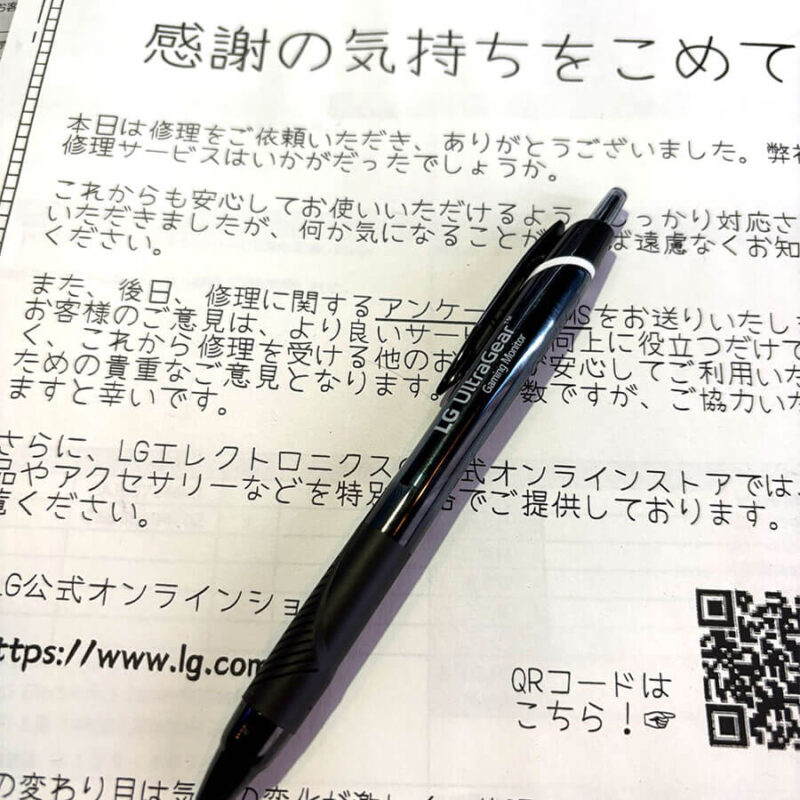 感謝の気持ちをこめて
本日は修理をご依頼いただき、ありがとうございました。弊社
修理サービスはいかがだったでしょうか。
これからも安心してお使いいただけるよう っかり対応さ
いただきましたが、何か気になることが ば遠慮なくお知
ください。
また、後日、修理に関するアンケー MSをお送りいたし
お客様のご意見は、より良いサービ 向上に役立つだけで
く、これから修理を受ける他のお が安心してご利用いた
ための貴重なご意見となります。 数ですが、ご協力いた
ますと幸いです。
さらに、LGエレクトロニクス 式オンラインストアでは、
品やアクセサリーなどを特別 でご提供しております。
覧ください。
LG公式オンラインショ
https://www.lg.com
QRコードは
こちら!☞
の変わり目は気 の変化が激しく
LG UltraGear™
Gaming Monitor